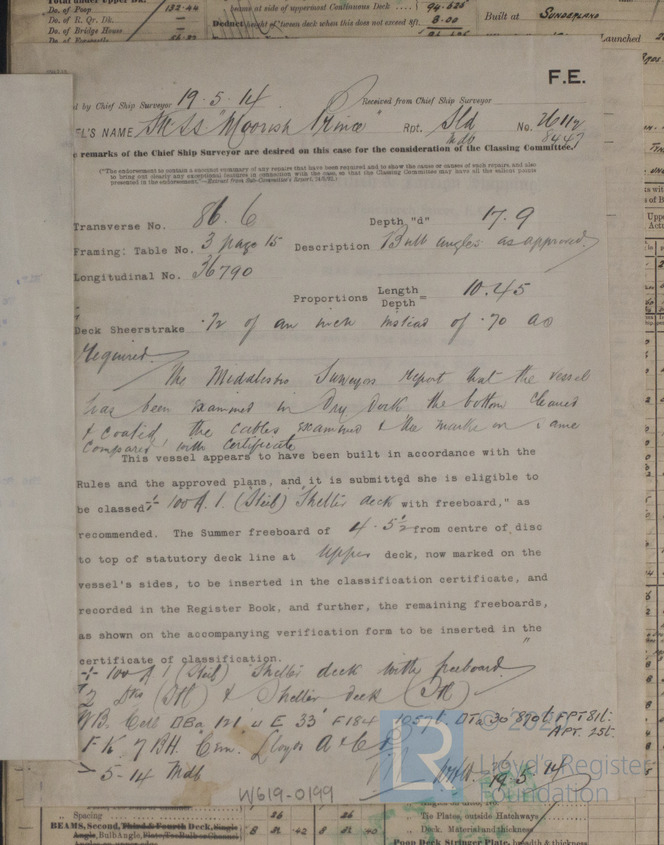 Total under Upper Dk.
Do. of Poop 132.44
Do. of R. Qr. Dk. —
Do. of Bridge House —
Do. of Forecastle
beams at side of uppermost Continuous Deck 94.625
Deduct height of 'tween deck when this does not exceed 8ft. 8.00
Built at SUNDERLAND
Launched
F.E.
t by Chief Ship Surveyor 19.5.14 Received from Chief Ship Surveyor
EL'S NAME "Moorish Prince" Rpt. Sld No. 26112
Mdb 8447
e remarks of the Chief Ship Surveyor are desired on this case for the consideration of the Classing Committee.
(*The endorsement to contain a succinct summary of any repairs that have been required and to show the cause or causes of such repairs, and also
to bring out clearly any exceptional features in connection with the case, so that the Classing Committee may have all the salient points
presented in the endorsement."—Extract from Sub-Committee's Report,
Transverse No. 86.6 Depth "d" 17.9
Framing: Table No. 3 page 15 Description Bulb angles as approved
Longitudinal No. 36790
Proportions Length
Depth = 10.45
Deck Sheerstrake .72 of an inch instead of .70 as
required.
The Middlesbro Surveyors report that the vessel
has been examined in Dry Dock the bottom cleaned
& coated, the cables examined & the marks on same
compared with certificate
This vessel appears to have been built in accordance with the
Rules and the approved plans, and it is submitted she is eligible to
be classed + 100 A.1. (Steel) "Shelter deck with freeboard," as
recommended. The Summer freeboard of 4.5½ from centre of disc
to top of statutory deck line at Upper deck, now marked on the
vessel's sides, to be inserted in the classification certificate, and
recorded in the Register Book, and further, the remaining freeboards,
as shown on the accompanying verification form to be inserted in the
certificate of classification.
+ 100 A 1 (Steel) "Shelter deck with freeboard"
2 Dks (Stl) & Shelter deck (Stl)
WB. Cell DBa 121' u E 33' F184' 1051t. DTa 30' 890t FPT 81t.
APT. 25t.
F.K. 7 BH. Cem. Lloyds A & CP
5-14 Mdb
19.5.14
© 202
LR
Lloyd's Register
Foundation
W619-0199
" Spacing 26 26
BEAMS, Second, Third & Fourth Deck, Single
Angle, Bulb Angle, Plate, Tee Bulb or Channel
" Tie Plates, outside Hatchways
" Deck. Material and thickness
Poop Deck Stringer Plate, breadth & thickness